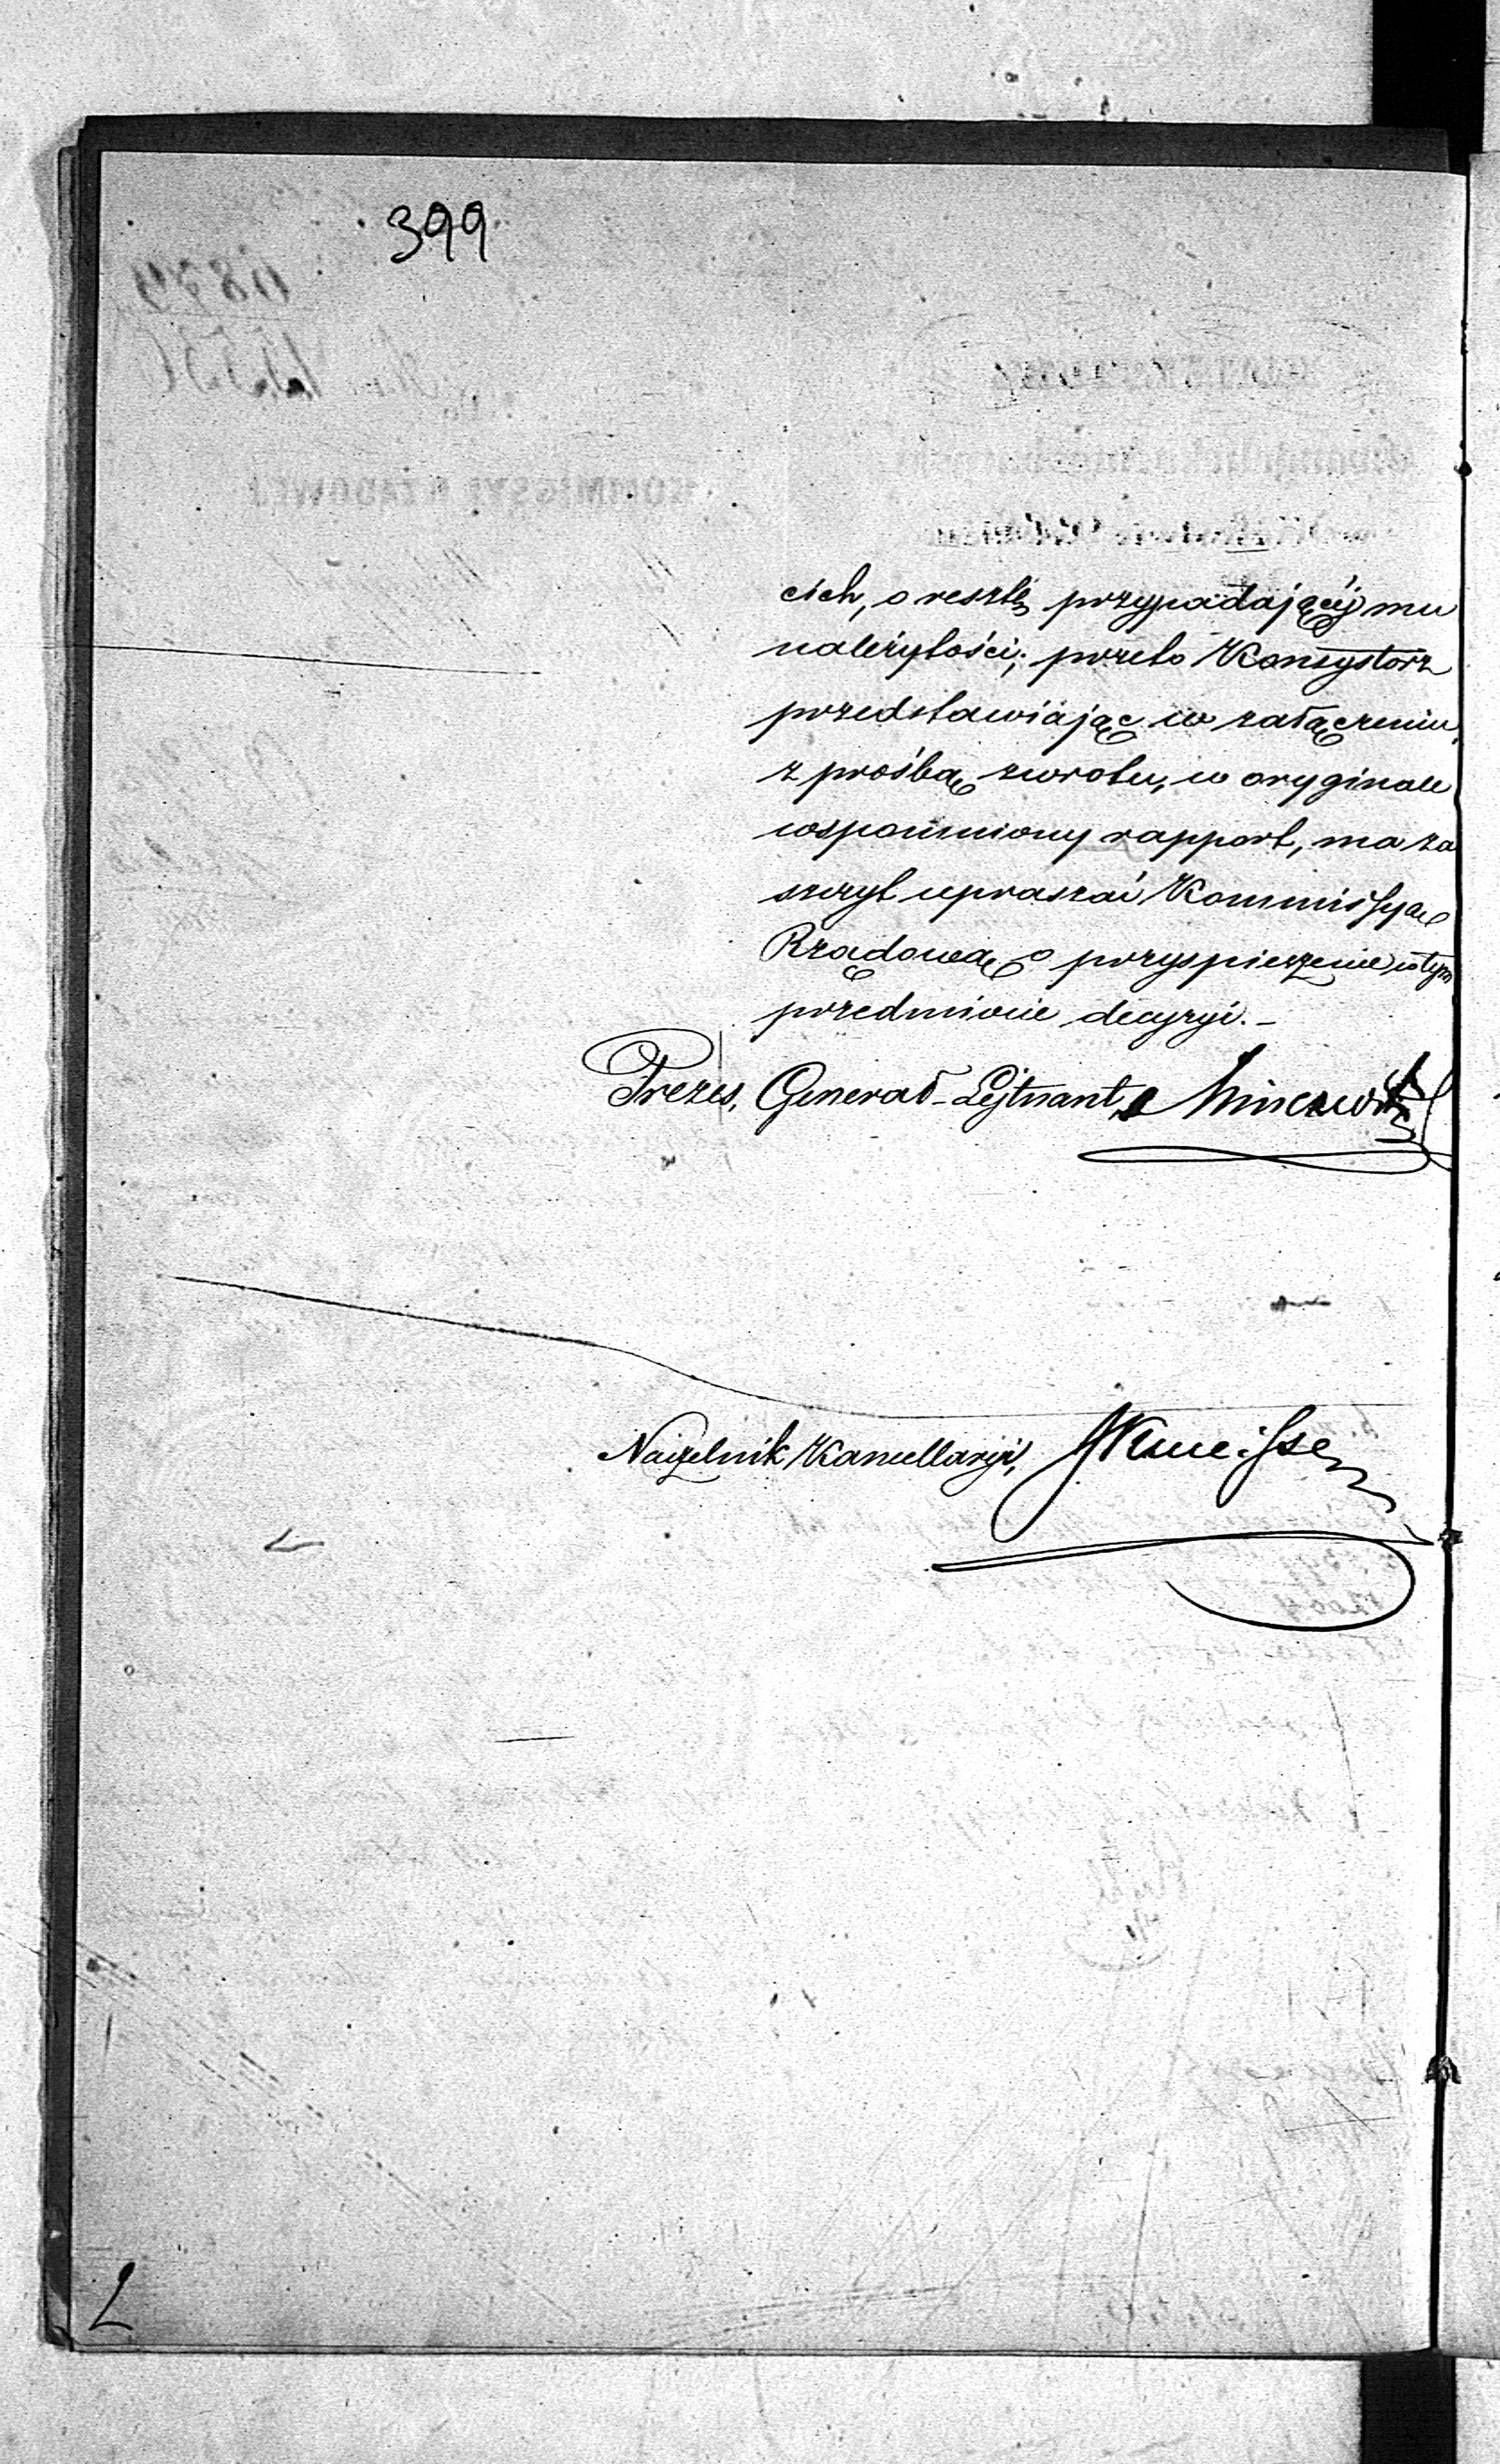 399
cich, o resztę przypadającéj mu
należytości; przeto Konsystorz
przedstawiając w załączeniu,
z prośbą zwrotu, w oryginale
wspomniony rapport, ma za
szczyt upraszać Kommissyą
Rządową o przyspieszenie w tym
przedmiocie decyzyi. —
Prezes, Generał-Lejtnant,
Naczelnik Kancellaryi,